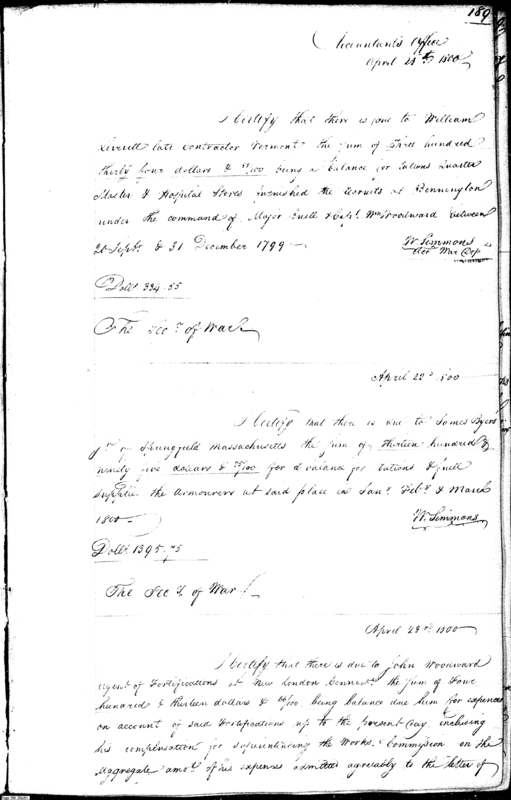 189
Accountants Office
April 21th 1800
I Certify that there is due to William
Leverett late contractor Vermont the sum of Three hundred
thirty four dollars & 55/100 being a balance for rations Quarter
Master & Hospital Stores furnished the recruits at Bennington
under the command of Major Buell & Capt. Wm Woodward between
20 Sept. & 31 December 1799
W. Simmons
Acct War Dept
Dolls 334.55
The Secy of War
April 22d 1800
I Certify that there is due to James Byers
Jr of Springfield Massachusetts the sum of thirteen hundred &
ninety five dollars & 75/100 for a balance for rations & fuell
supplied the Armourers at said place in Jany Feby & March
1800
W. Simmons
Dolls 1395.75
The Secy of War
April 23d 1800
I Certify that there is due to John Woodward
agent of Fortifications at New London Connect. the sum of Four
hundred & thirteen dollars & 06/100 being balance due him for expences
on account of said Fortifications up to the present day, including
his compensation for superintending the Works & Commission on the
Aggregate amot. of his expences admitted agreeably to the letter of